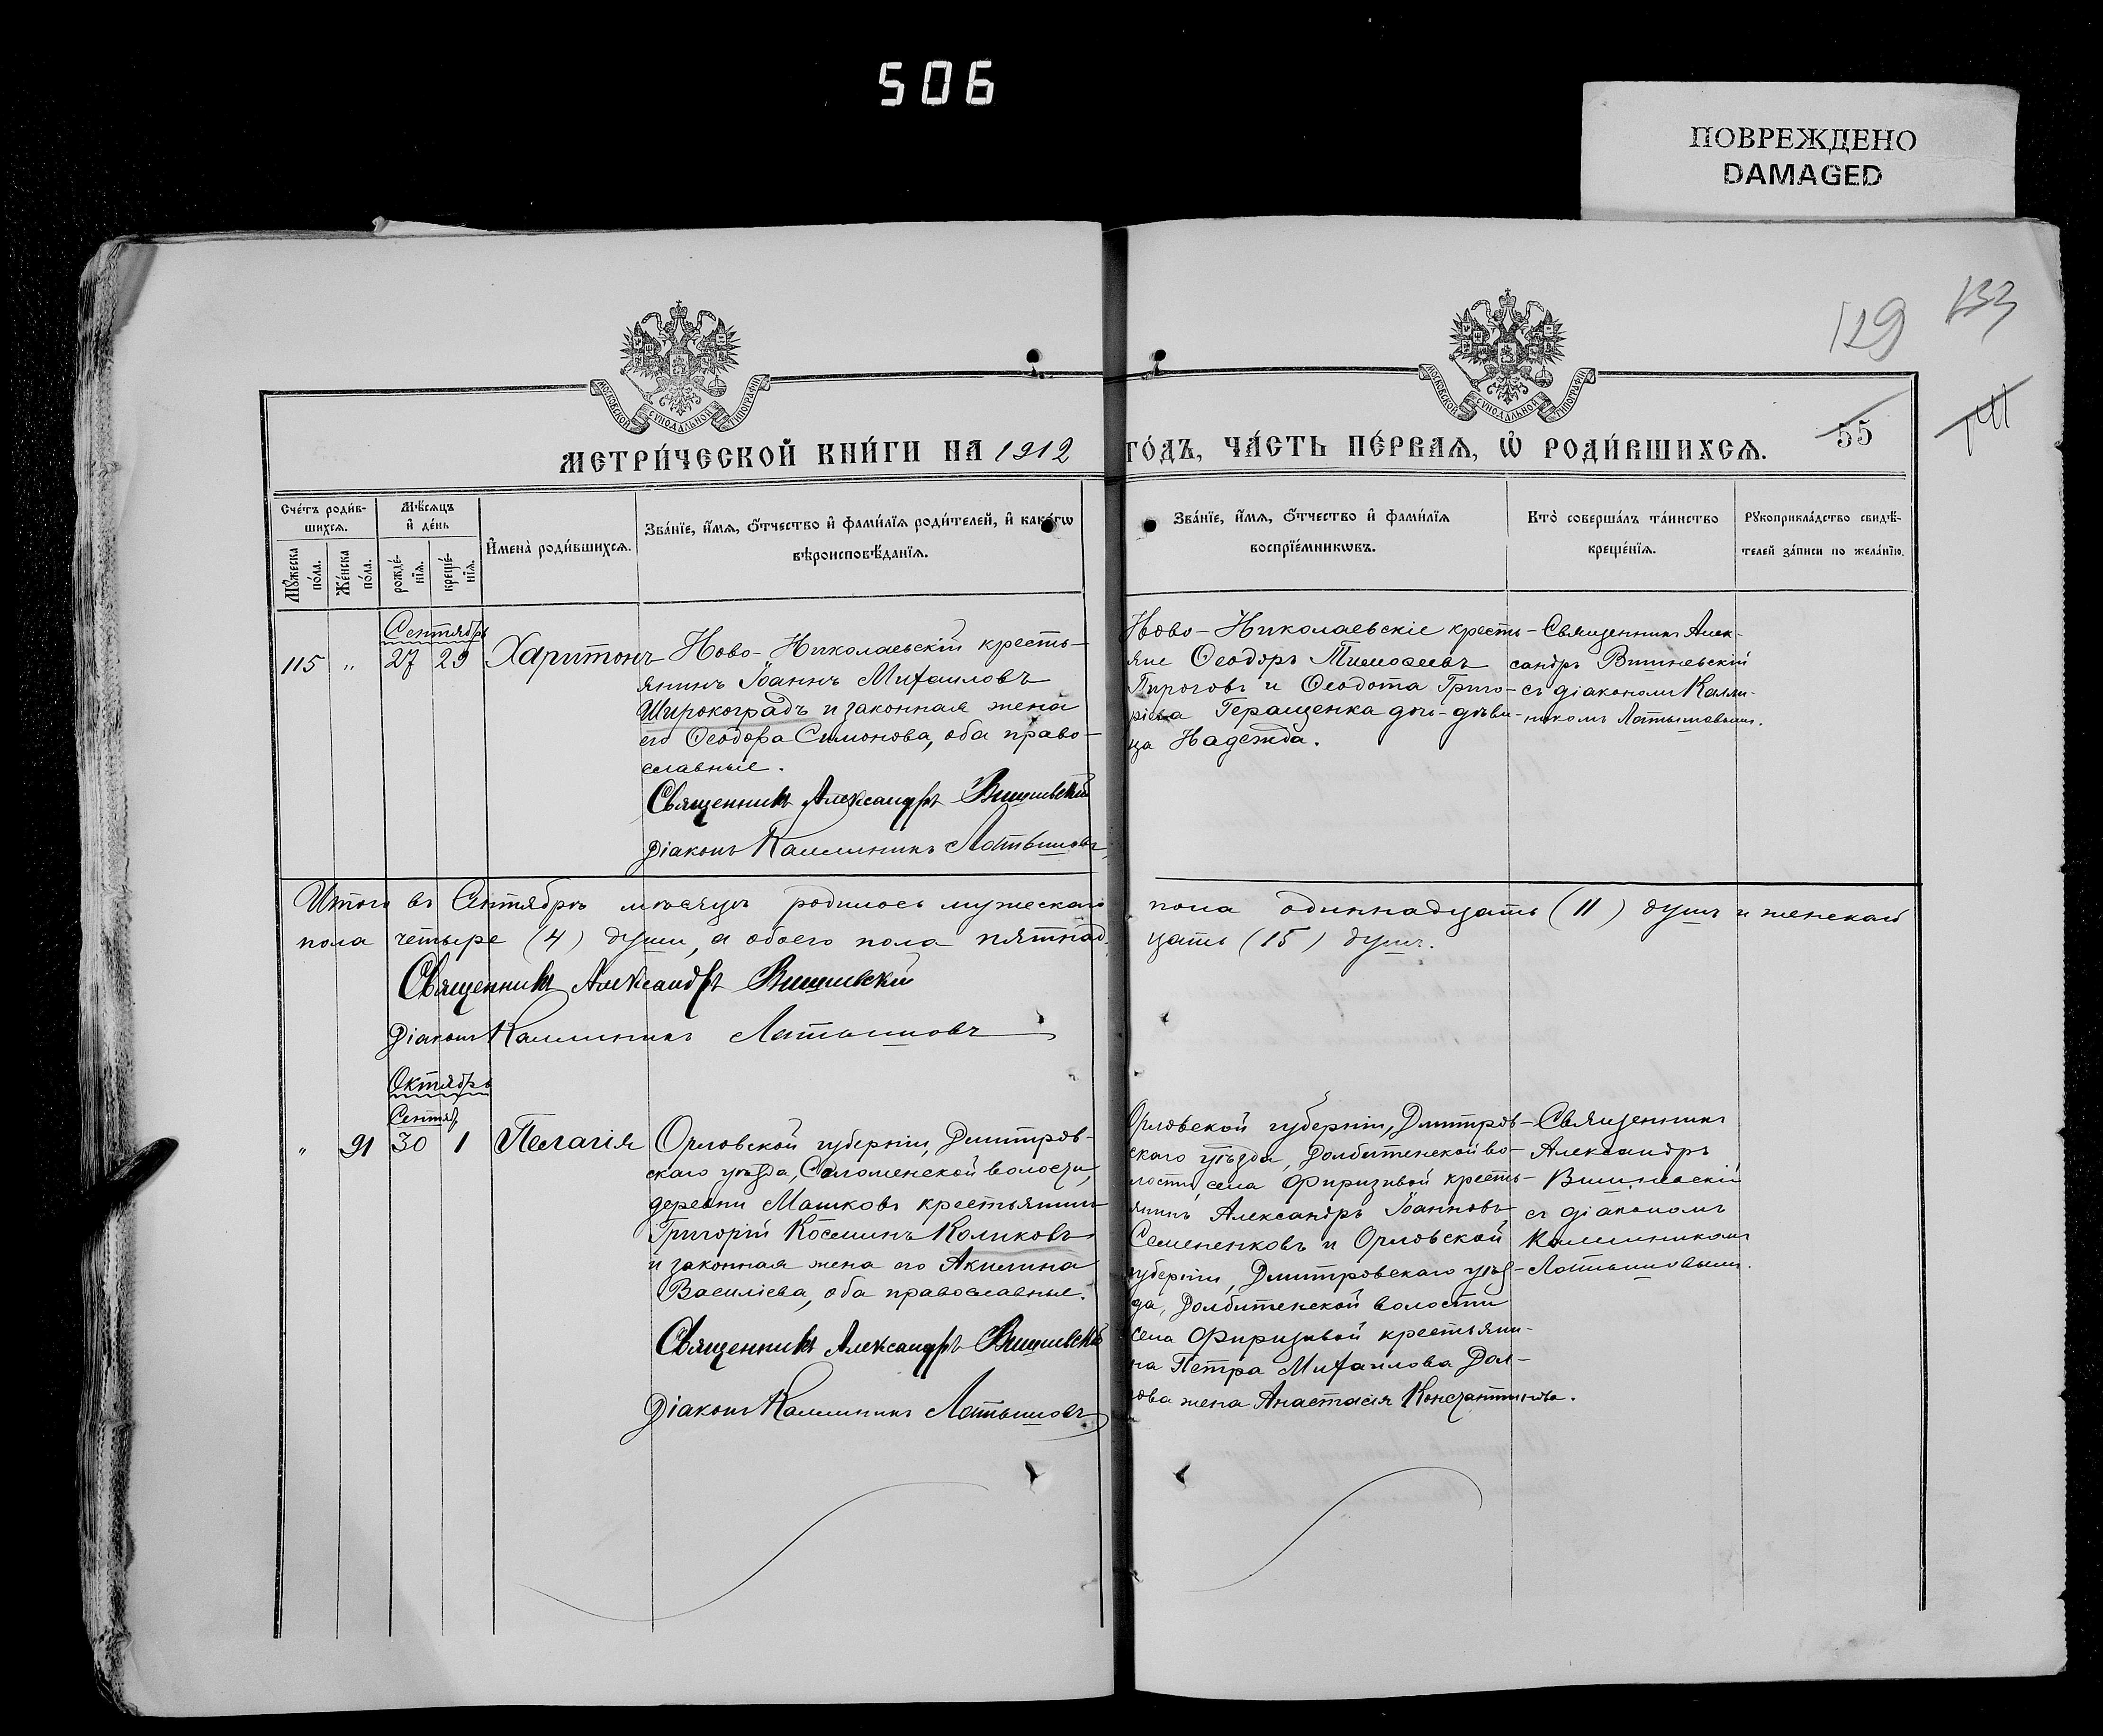 506
ПОВРЕЖДЕНО
DAMAGED
129
133
141
МОСКОВСКОЙ СѴНОДАЛЬНОЙ ТИПОГРАФІИ
МОСКОВСКОЙ СѴНОДАЛЬНОЙ ТИПОГРАФІИ
55
МЕТРИ́ЧЕСКОЙ КНИ́ГИ НА 1912 ГО́ДЪ, ЧА́СТЬ ПЕ́РВАѦ, Ѡ҆ РОДИ́ВШИХСѦ.
Сче́тъ роди́в-
шихсѧ.
Мꙋжеска по́ла.
Же́нска по́ла.
Мѣ́сѧцъ
и҆ де́нь
рожде́-
нїѧ.
креще́-
нїѧ.
И҆мена̀ роди́вшихсѧ.
Зва́нїе, и҆́мѧ, ѻ҆́тчество и҆ фами́лїѧ роди́телей, и҆ како́гѡ
вѣроисповѣ́данїѧ.
Зва́нїе, и҆́мѧ, ѻ҆́тчество и҆ фами́лїѧ
воспрїе́мникѡвъ.
Кто̀ соверша́лъ та́инство
креще́нїѧ.
Рꙋкоприкла́дство свидѣ́-
телей за́писи по жела́нїю.
Сентябрь
115 " 27 29 Харитонъ
Ново-Николаевскій кресть-
янинъ Іоаннъ Михаиловъ
Широкоградъ и законная жена
его Ѳеодора Симонова, оба право-
славные.
Священникъ Александръ Вишневскій
Діаконъ Каллиникъ Латышовъ
Ново-Николаевскіе кресть-
яне Ѳеодоръ Тимоѳеевъ
Пироговъ и Ѳеодота Григо-
ріева Геращенка дочь-дѣви-
ца Надежда.
Священникъ Алек-
сандръ Вишневскій
съ діакономъ Калли-
никомъ Латышовымъ.
Итого въ Сентябрѣ мѣсяцѣ родилось мужескаго пола одиннадцать (11) душъ и женскаго
пола четыре (4) души, а обоего пола пятнад- цать (15) душъ.
Священникъ Александръ Вишневскій
Діаконъ Каллиникъ Латышовъ
Октябрь
Сентяб.
" 91 30 1 Пелагія
Орловской губерніи, Дмитров-
скаго уѣзда, Соломенской волости,
деревни Машковъ крестьянинъ
Григорій Космин Коликовъ
и законная жена его Акилина
Василіева, оба православные.
Священникъ Александръ Вишневскій
Діаконъ Каллиникъ Латышовъ
Орловской губерніи, Дмитров-
скаго уѣзда, Долбитенской во-
лости, села Фиризивой кресть-
янинъ Александръ Іоанновъ
Семененковъ и Орловской
губерніи, Дмитровскаго уѣз-
да, Долбитенской волости
села Фиризивой крестьяни-
на Петра Михаилова Дол-
гова жена Анастасія Константинова.
Священникъ
Александръ
Вишневскій
съ діакономъ
Каллиникомъ
Латышовымъ.